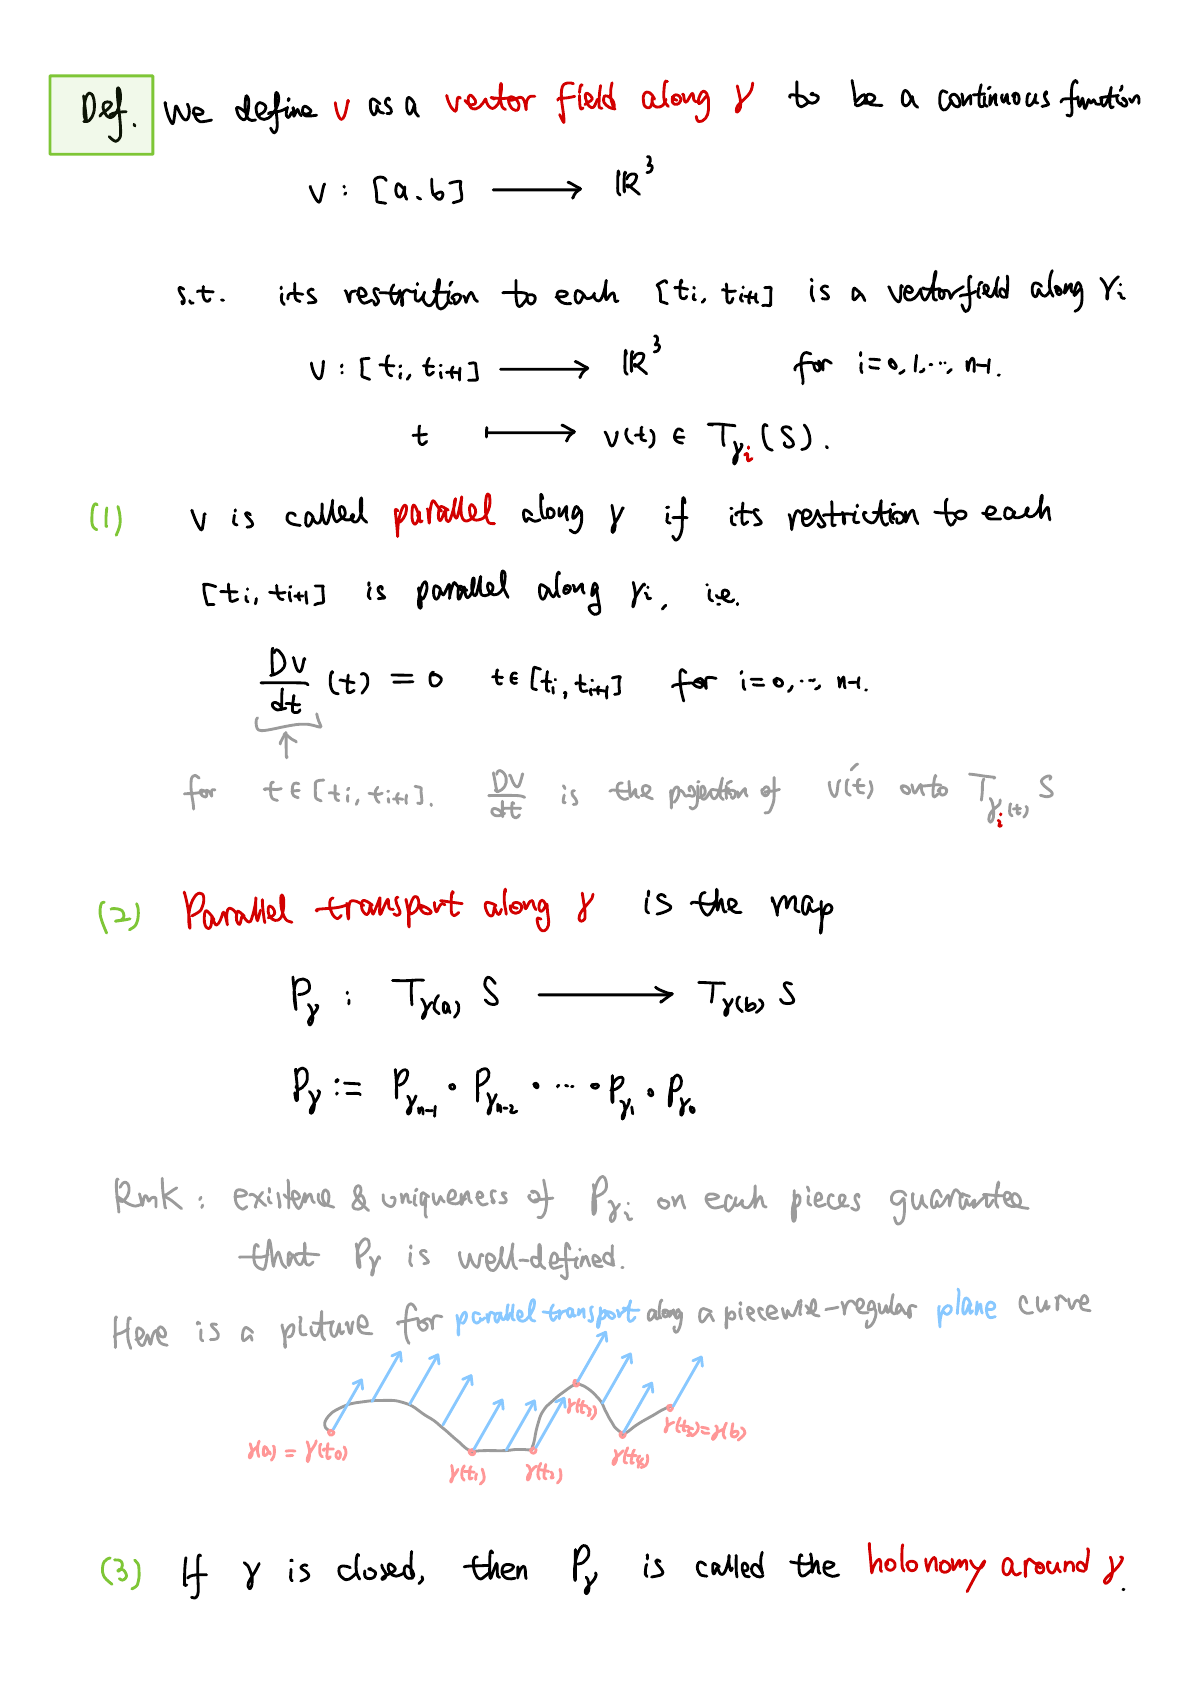 Def. We define v as a vector field along γ to be a continuous function
v : [a.b] ⟶ ℝ³
s.t. its restriction to each [tᵢ, tᵢ₊₁] is a vectorfield along γᵢ
v : [tᵢ, tᵢ₊₁] ⟶ ℝ³ for i=0,1,⋯, n-1.
t ⟼ v(t) ∈ T_γᵢ(S).
(1) v is called parallel along γ if its restriction to each
[tᵢ, tᵢ₊₁] is parallel along γᵢ, i.e.
Dv/dt (t) = 0 t∈[tᵢ, tᵢ₊₁] for i=0,⋯, n-1.
↑
for t∈[tᵢ, tᵢ₊₁]. Dv/dt is the projection of v′(t) onto T_γᵢ(t) S
(2) Parallel transport along γ is the map
P_γ : T_γ(a) S ⟶ T_γ(b) S
P_γ := P_γₙ₋₁ ∘ P_γₙ₋₂ ∘ ⋯ ∘ P_γ₁ ∘ P_γ₀
Rmk : existence & uniqueness of P_γᵢ on each pieces guarantee
that P_γ is well-defined.
Here is a picture for parallel transport along a piecewise-regular plane curve
γ(t₃)
γ(t₅)=γ(b)
γ(a) = γ(t₀)
γ(t₁) γ(t₂) γ(t₄)
(3) If γ is closed, then P_γ is called the holonomy around γ.